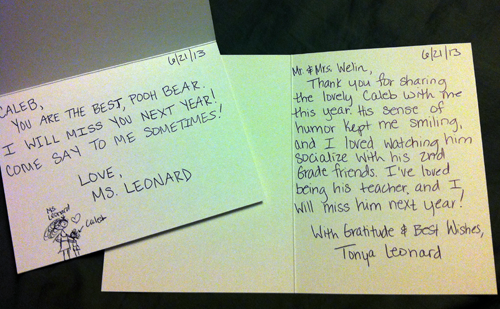 6/21/13
CALEB,
YOU ARE THE BEST, POOH BEAR.
I WILL MISS YOU NEXT YEAR!
COME SAY TO ME SOMETIMES!
LOVE,
MS. LEONARD
Ms
Leonard
Caleb
6/21/13
Mr. & Mrs. Welin,
Thank you for sharing
the lovely Caleb with me
this year. His sense of
humor kept me smiling,
and I loved watching him
socialize with his 2nd
Grade friends. I've loved
being his teacher, and I
will miss him next year!
With Gratitude & Best Wishes,
Tonya Leonard